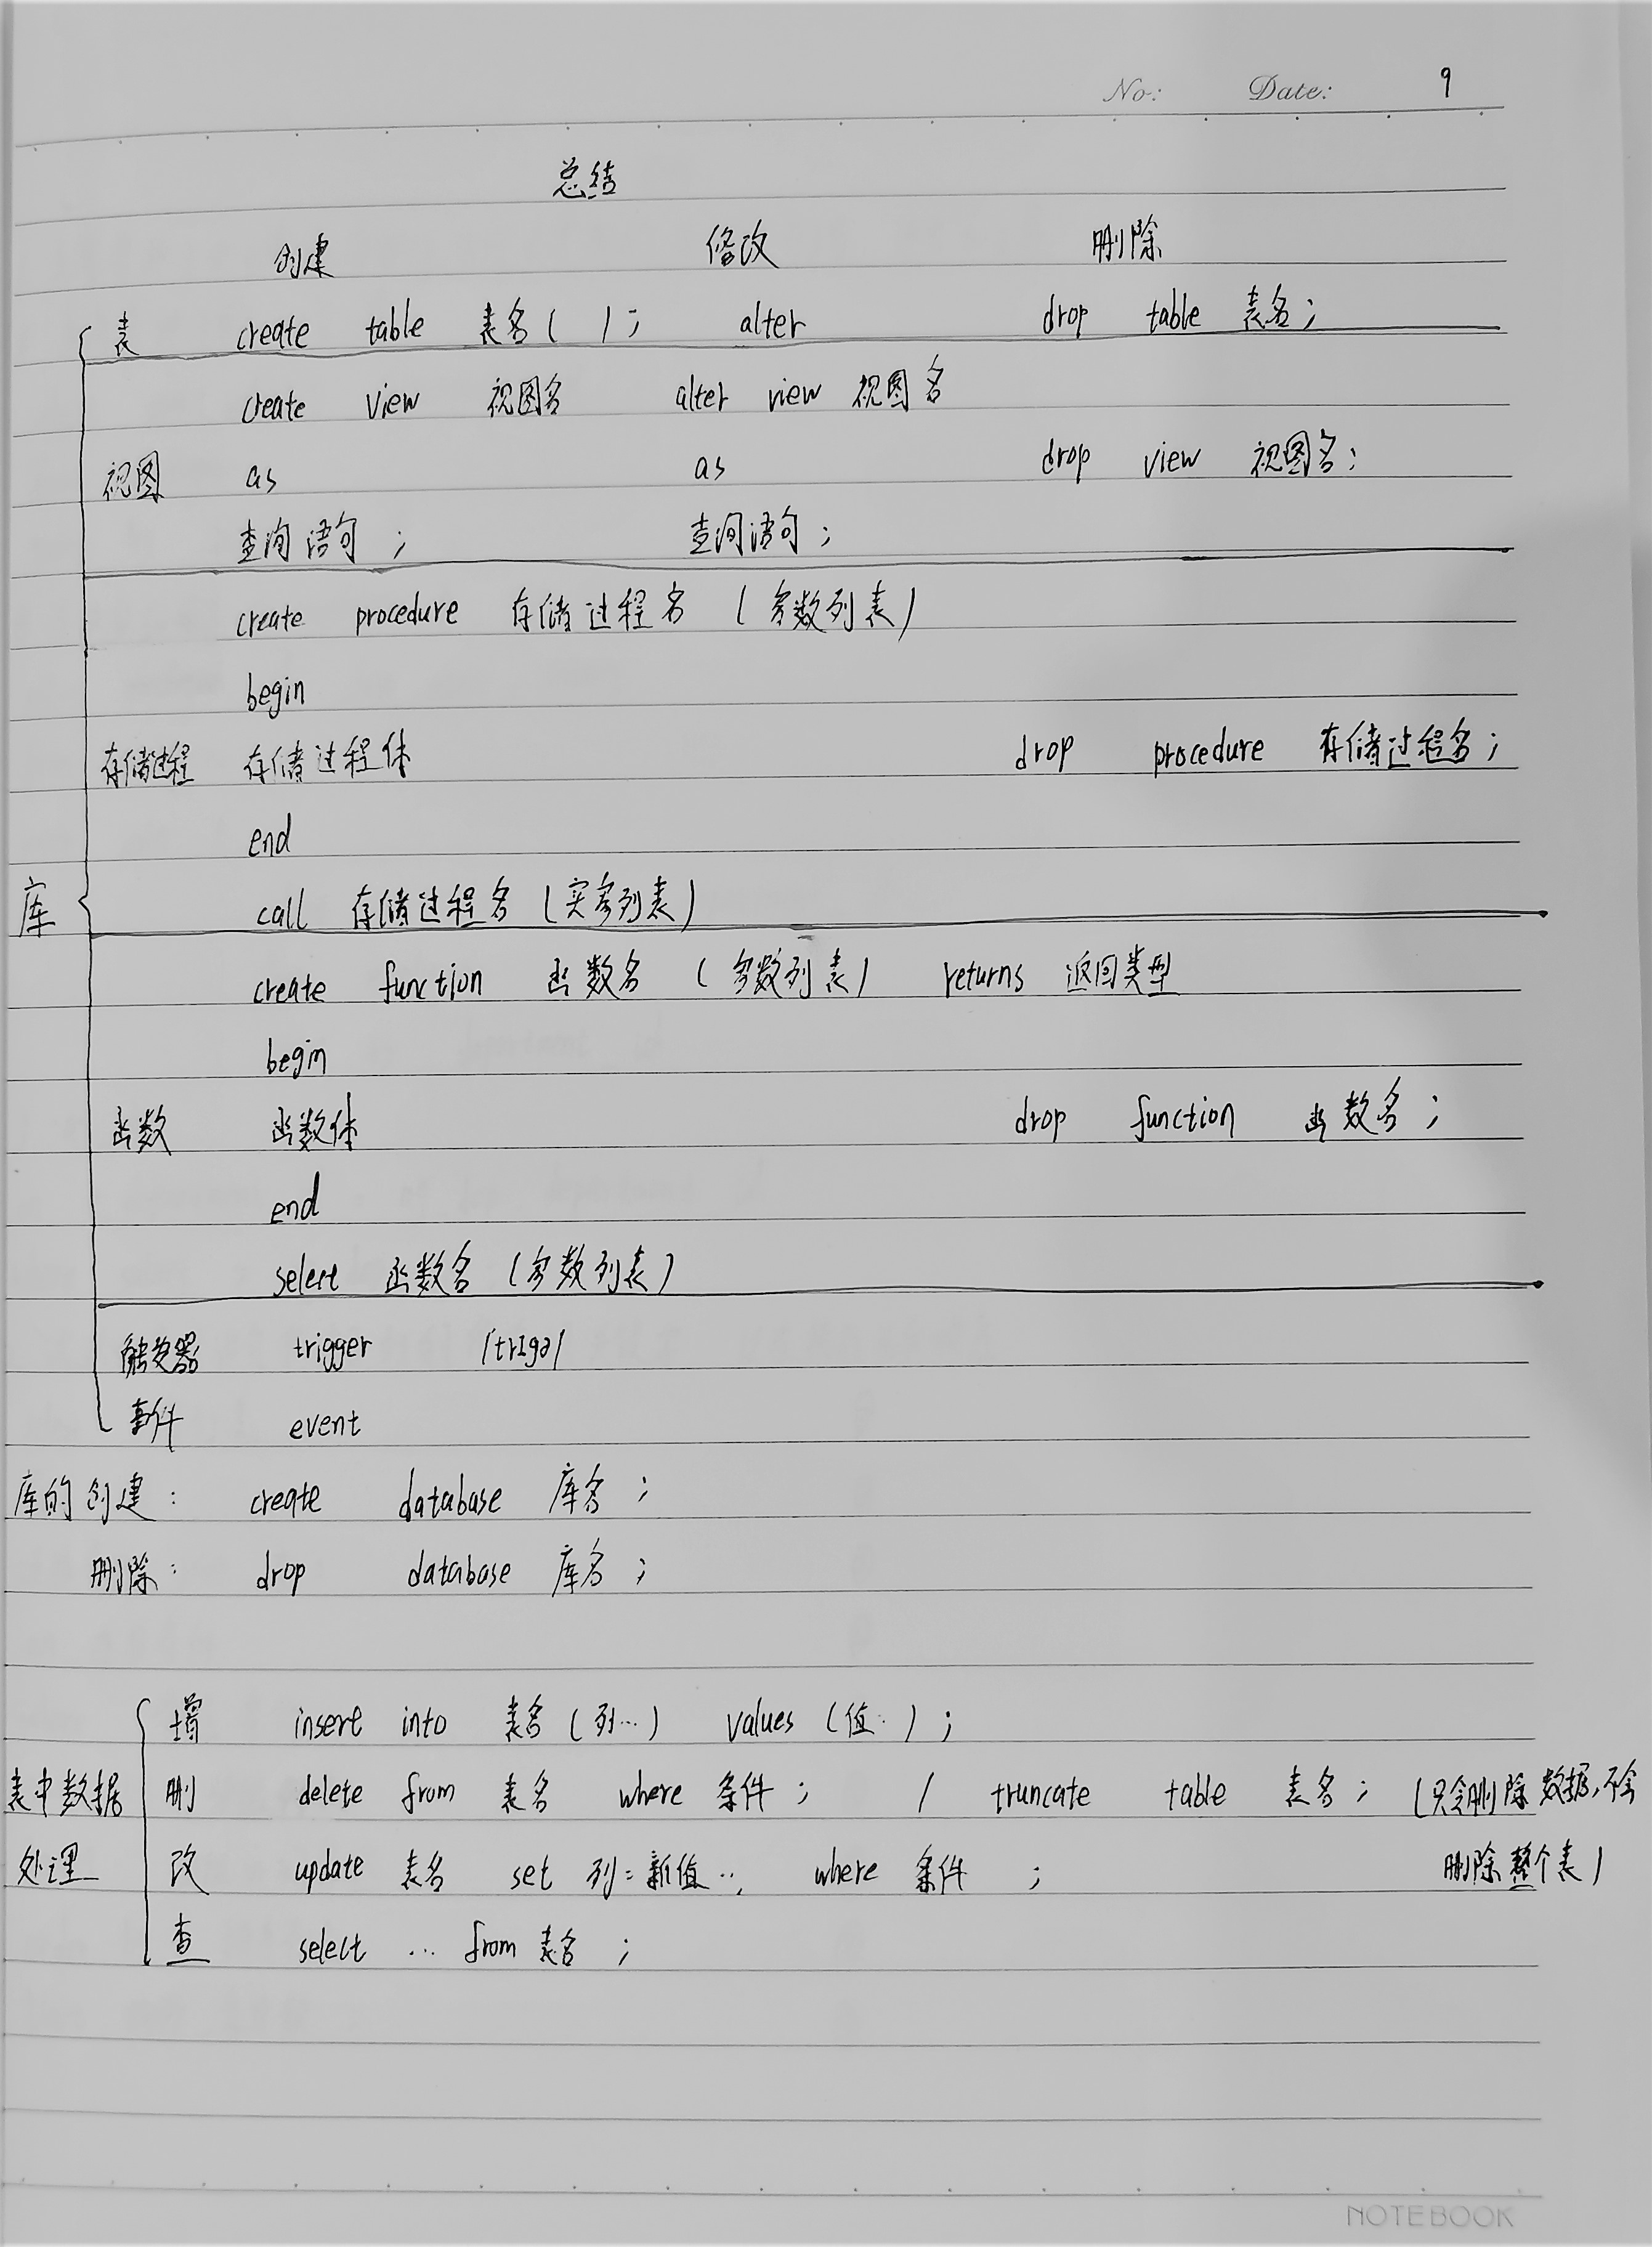 No: Date: 9
总结
创建 修改 删除
表 create table 表名( ); alter drop table 表名;
create view 视图名 alter view 视图名
视图 as as drop view 视图名;
查询语句; 查询语句;
create procedure 存储过程名 (参数列表)
begin
存储过程 存储过程体 drop procedure 存储过程名;
end
库 call 存储过程名 (实参列表)
create function 函数名 (参数列表) returns 返回类型
begin
函数 函数体 drop function 函数名;
end
select 函数名 (参数列表)
触发器 trigger /trɪgə/
事件 event
库的创建: create database 库名;
删除: drop database 库名;
增 insert into 表名 (列…) values (值…);
表中数据 删 delete from 表名 where 条件; / truncate table 表名; (只会删除数据,不会
处理 改 update 表名 set 列=新值…, where 条件; 删除整个表)
查 select … from 表名;
NOTEBOOK